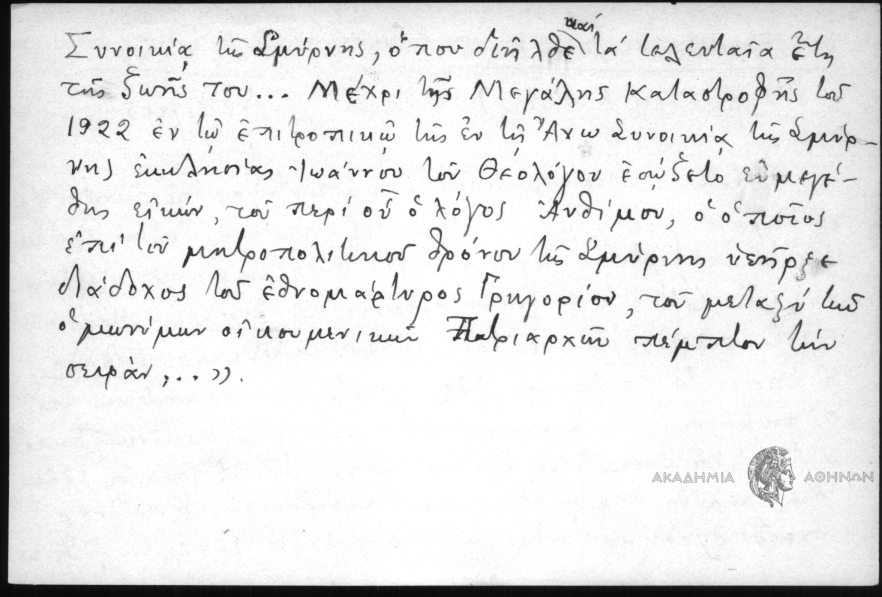 Συνοικίᾳ τῆς Σμύρνης, ὅπου διῆλθε καὶ τὰ τελευταῖα ἔτη
τῆς ζωῆς του... Μέχρι τῆς Μεγάλης Καταστροφῆς τοῦ
1922 ἐν τῷ ἐπιτροπικῷ τῆς ἐν τῇ Ἄνω Συνοικίᾳ τῆς Σμύρ-
νης ἐκκλησίας Ἰωάννου τοῦ Θεολόγου ἐσῴζετο εὐμεγέ-
θης εἰκών, τοῦ περὶ οὗ ὁ λόγος Ἀνθίμου, ὁ ὁποῖος
ἐπὶ τοῦ μητροπολιτικοῦ θρόνου τῆς Σμύρνης ὑπῆρξε
διάδοχος τοῦ ἐθνομάρτυρος Γρηγορίου, τοῦ μεταξὺ τῶν
ὁμωνύμων οἰκουμενικῶν Πατριαρχῶν πέμπτου τὴν
σειράν,..».
ΑΚΑΔΗΜΙΑ ΑΘΗΝΩΝ